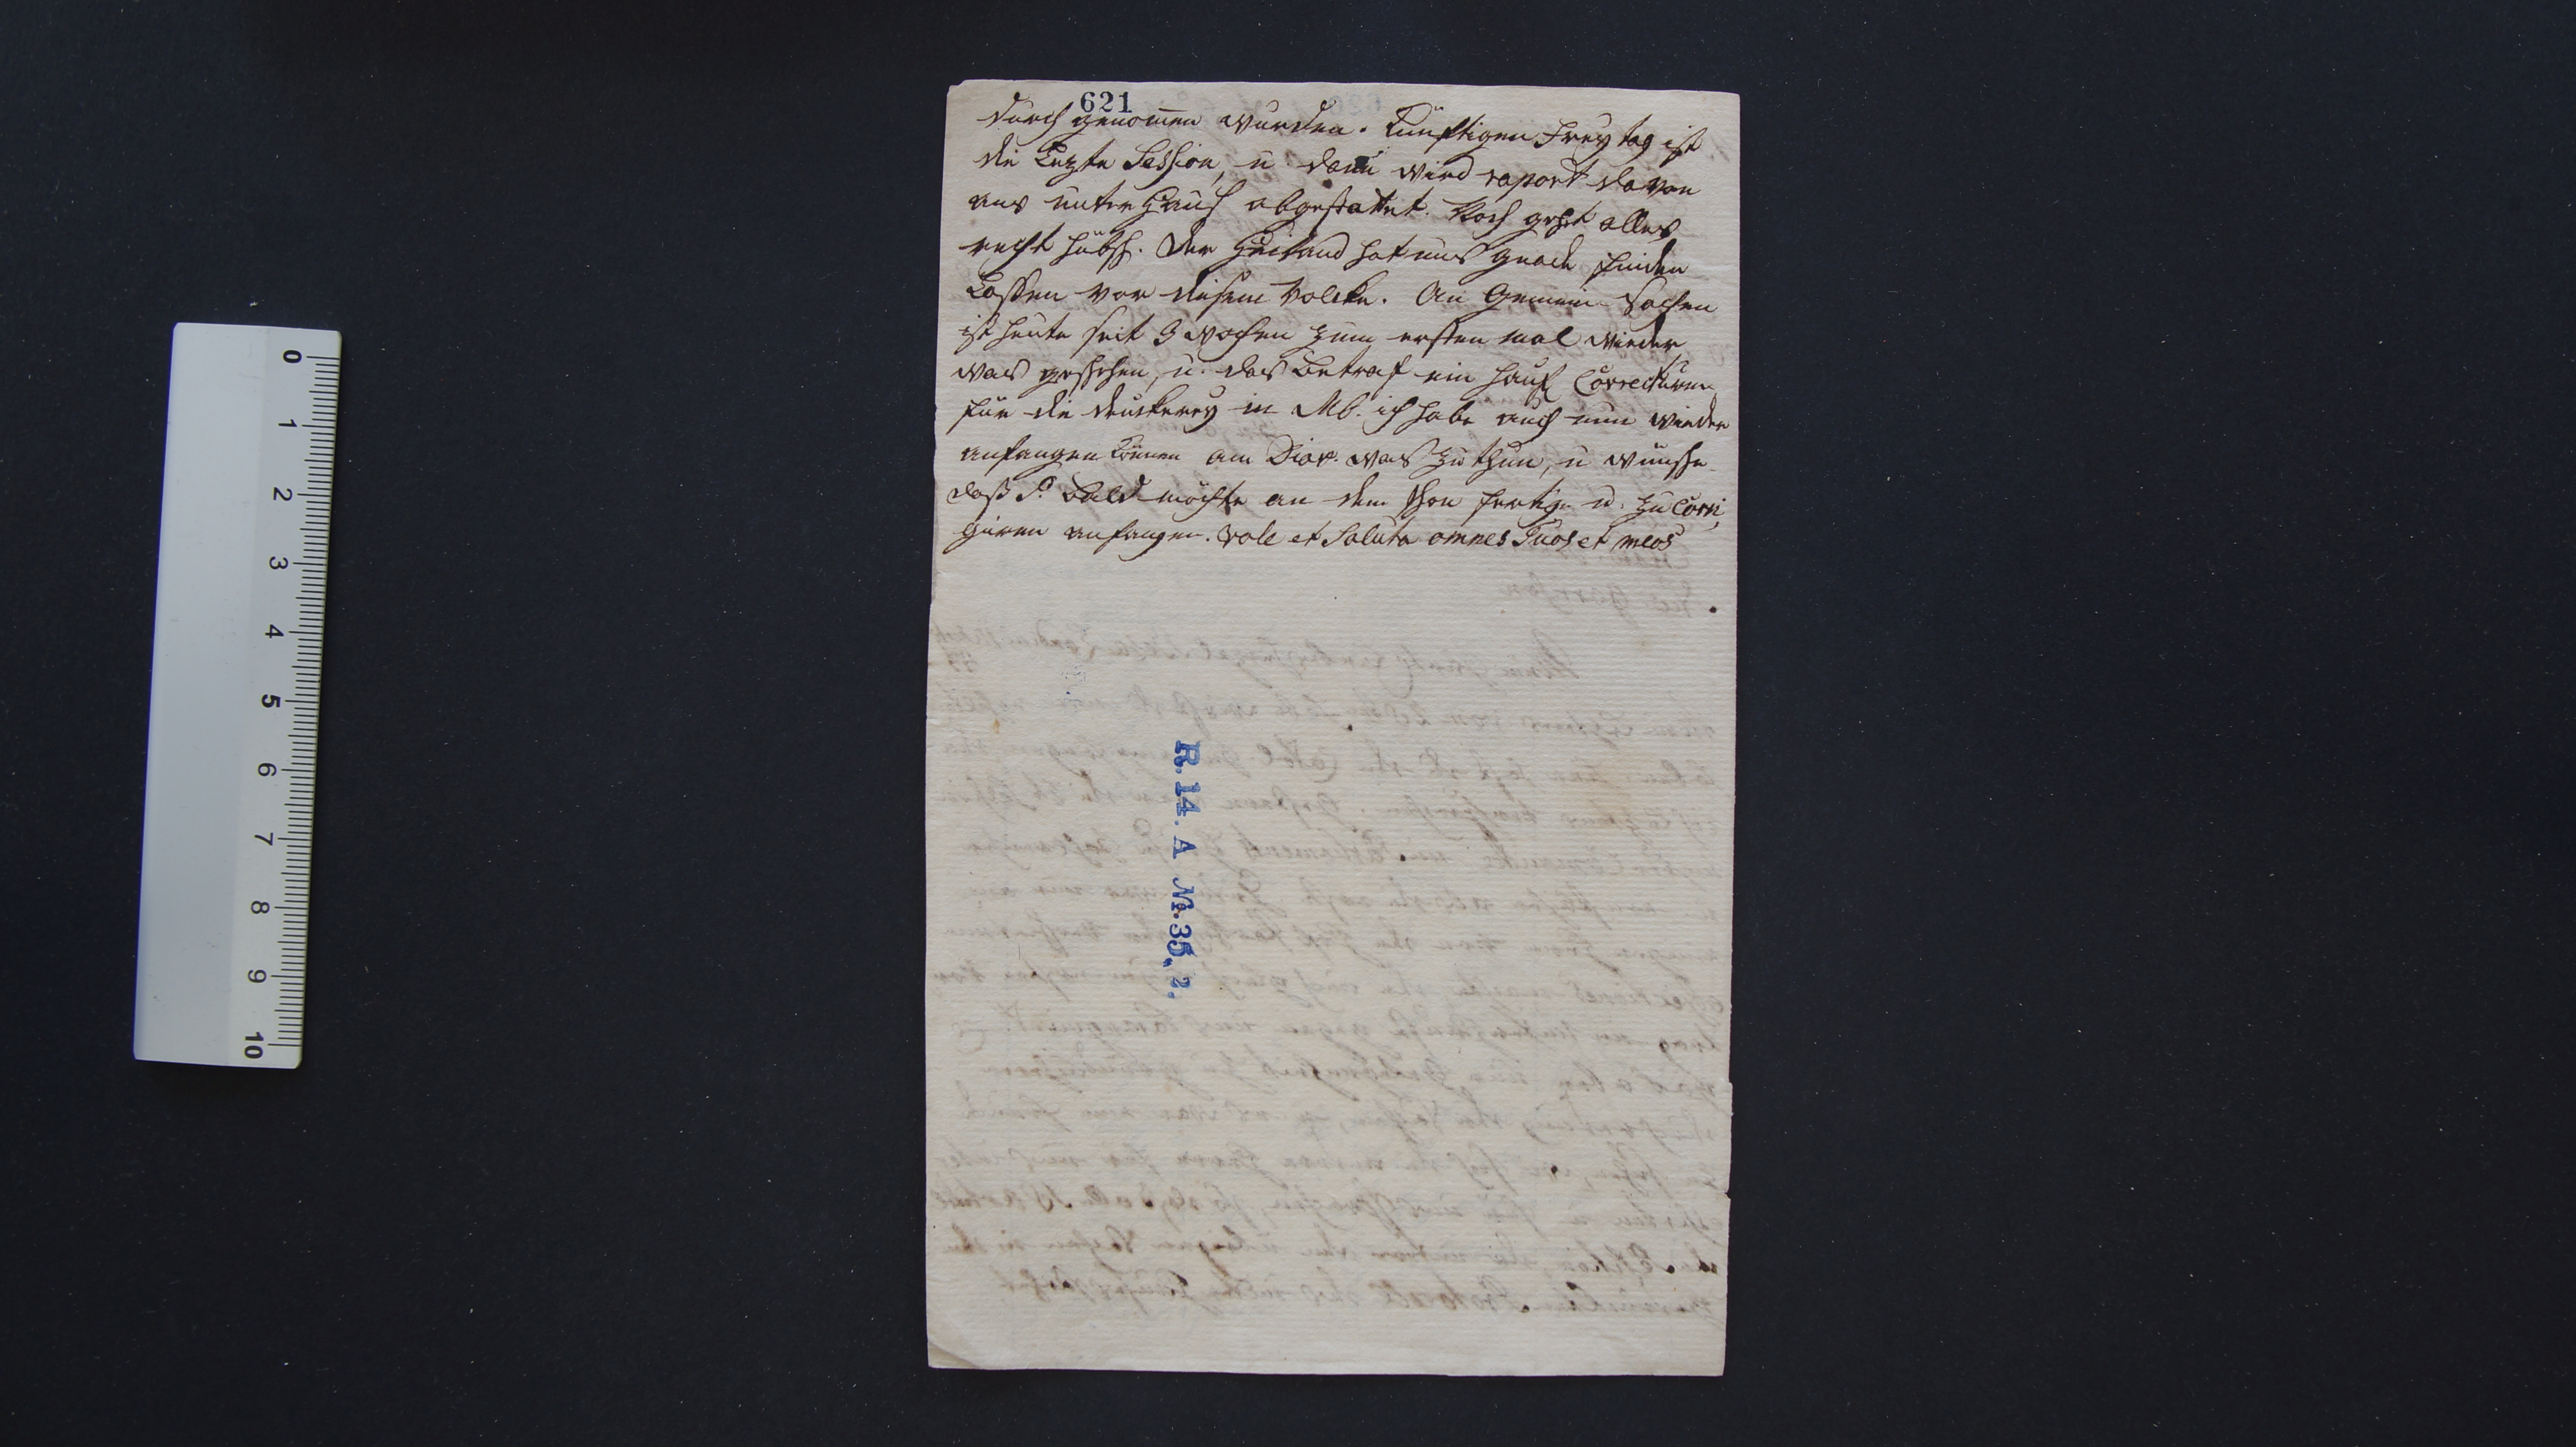 621
durch genomen wurden. Künftigen Freytag ist
die Lezte Session, u. dann wird raport davon
ans unter Hauß abgestattet. Noch geht alles
recht hübsch. Der Heiland hat uns Gnade finden
Lassen vor diesem Volcke. An Gemein Sachen
ist heute seit 3 wochen zum ersten mal wieder
was geschehen, u. das Betraf ein Hauff Correcturen
für die druckerey in Mb. ich habe auch nun wieder
anfangen können am Diar. was zu thun, u wünsche
daß S. bald möchte an dem schon fertig u. zu Corri
giren anfangen. Vale et Saluta omnes Tuos et meos
R. 14. A Nr. 35, 2.
0 1 2 3 4 5 6 7 8 9 10